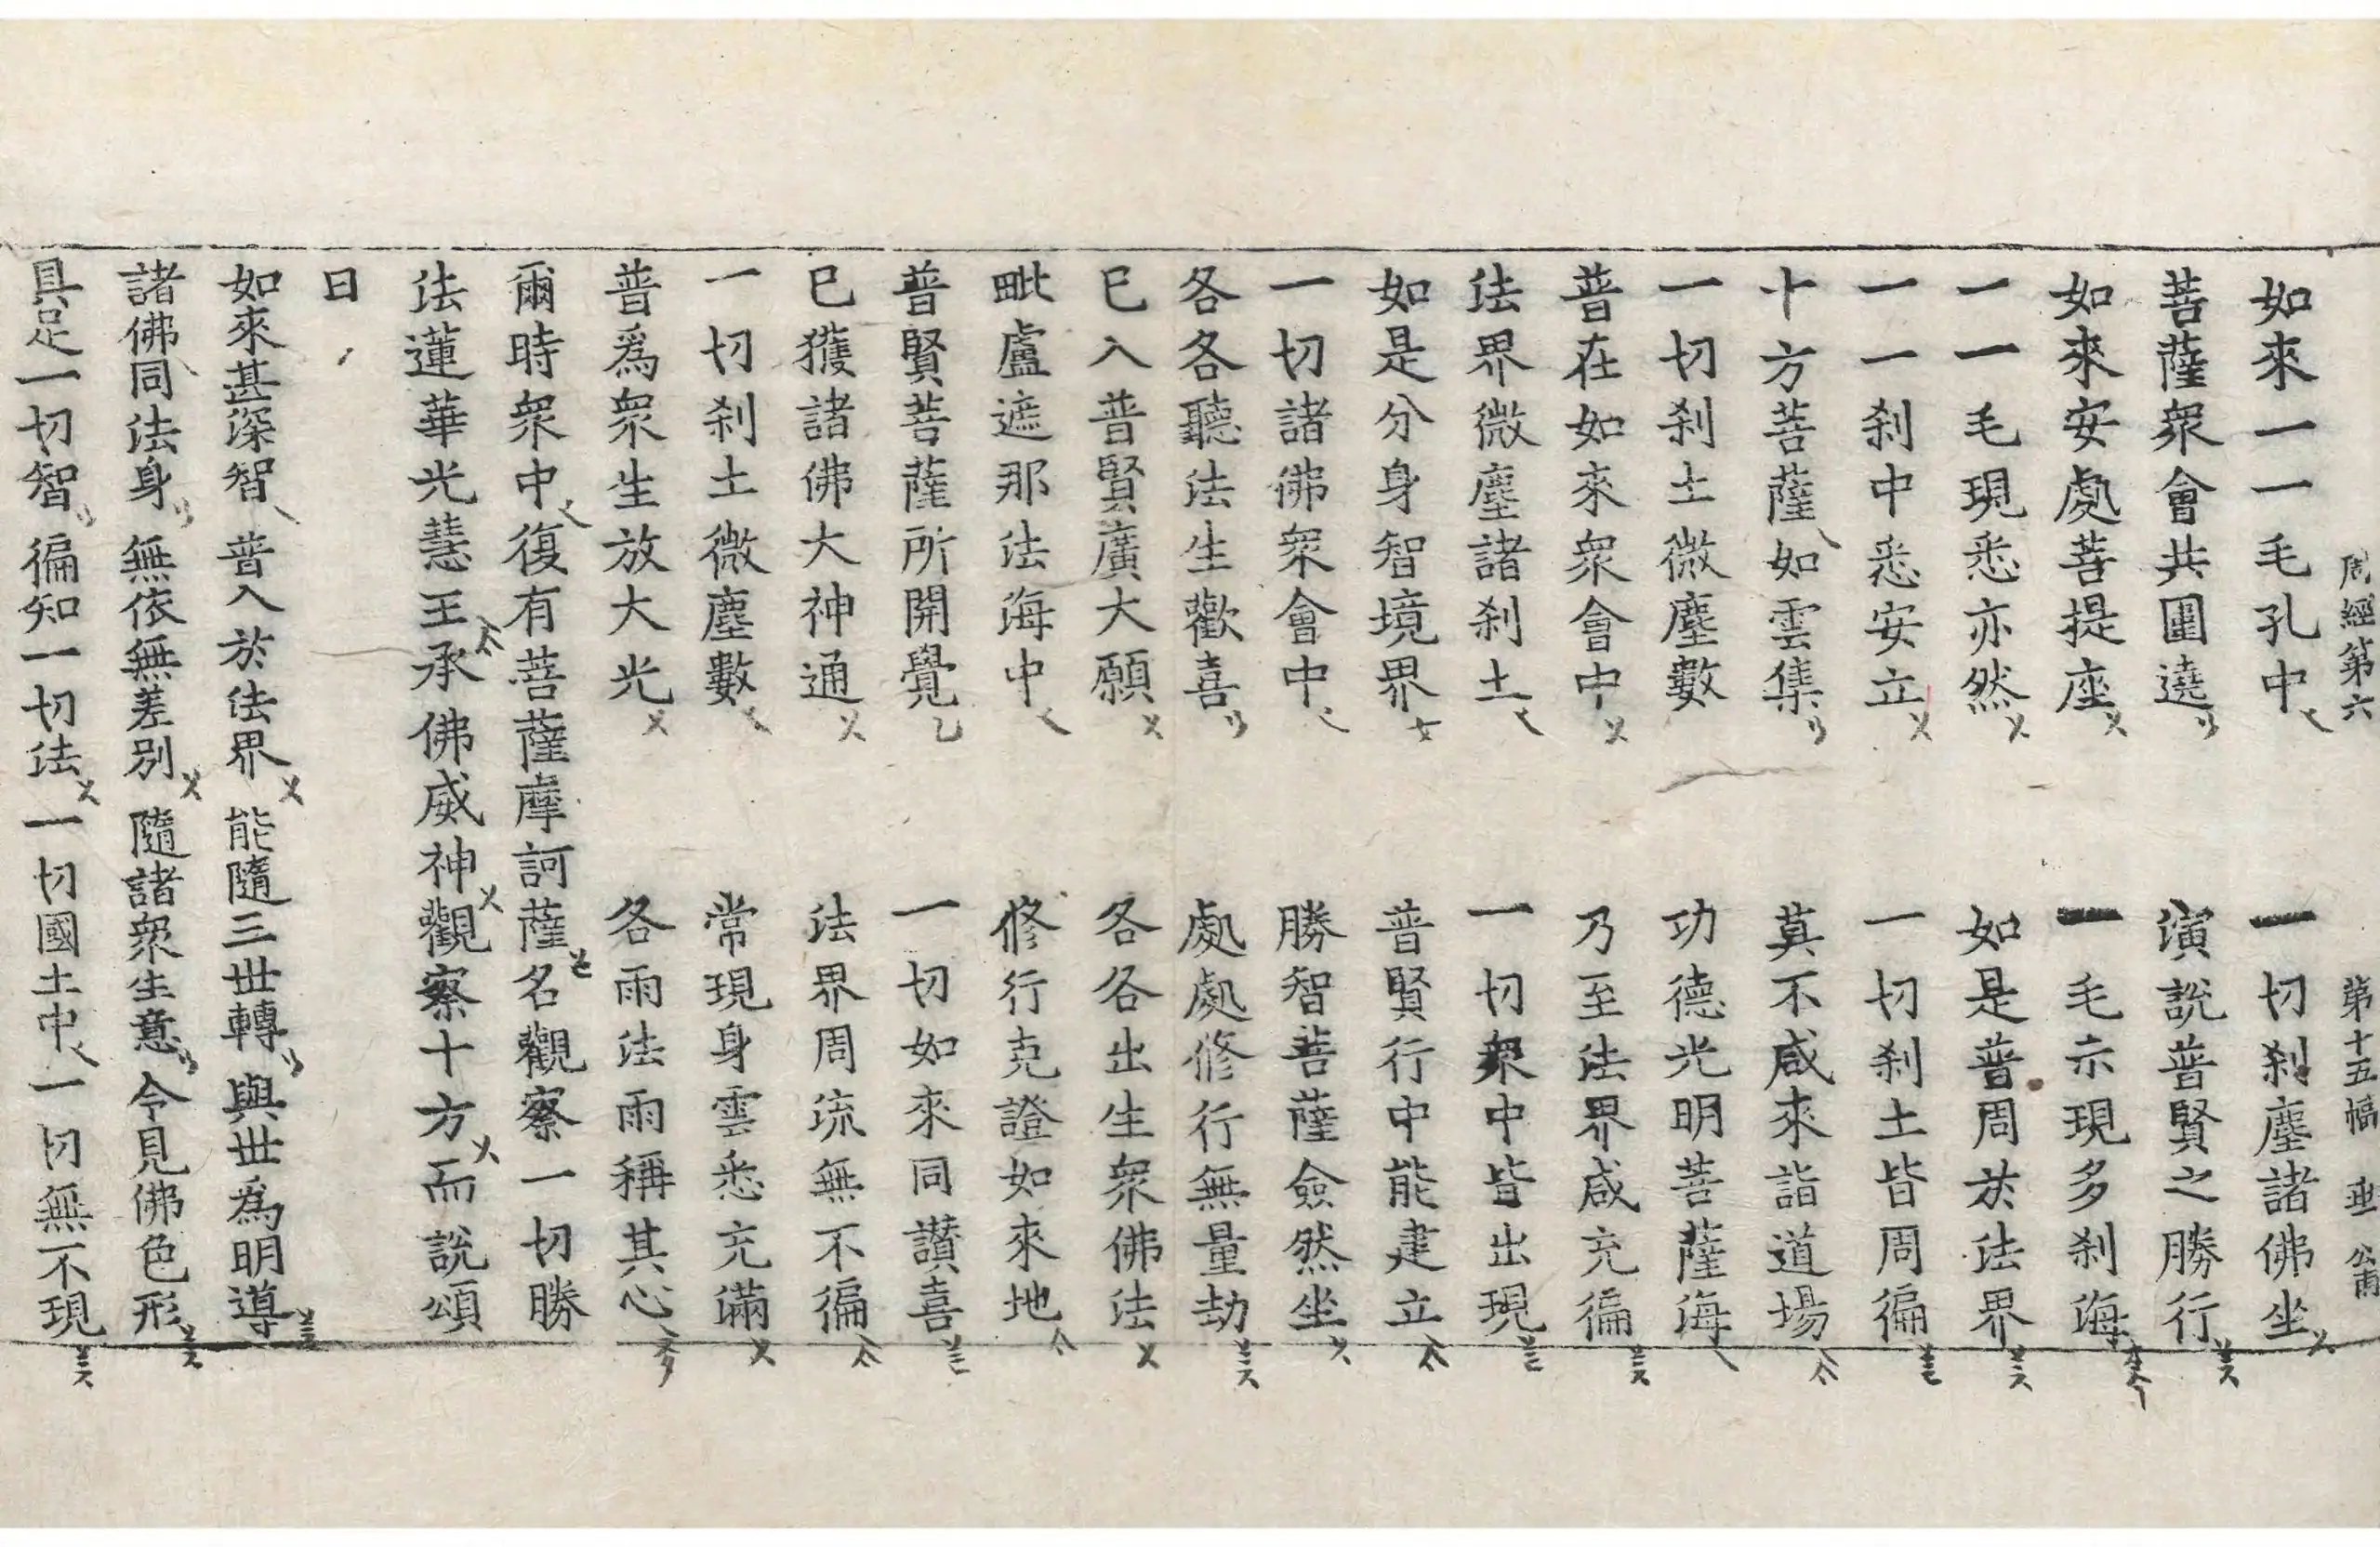 周經第六 第十五幅 垂
如來一一毛孔中 一切剎塵諸佛坐
菩薩衆會共圍遶 演說普賢之勝行
如來安處菩提座 一毛示現多剎海
一一毛現悉亦然 如是普周於法界
一一剎中悉安立 一切剎土皆周徧
十方菩薩如雲集 莫不咸來詣道場
一切剎土微塵數 功德光明菩薩海
普在如來衆會中 乃至法界咸充徧
法界微塵諸剎土 一切衆中皆出現
如是分身智境界 普賢行中能建立
一切諸佛衆會中 勝智菩薩僉然坐
各各聽法生歡喜 處處修行無量劫
已入普賢廣大願 各各出生衆佛法
毗盧遮那法海中 修行克證如來地
普賢菩薩所開覺 一切如來同讃喜
已獲諸佛大神通 法界周流無不徧
一切剎土微塵數 常現身雲悉充滿
普爲衆生放大光 各雨法雨稱其心
爾時衆中復有菩薩摩訶薩名觀察一切勝
法蓮華光慧王承佛威神觀察十方而說頌
曰
如來甚深智 普入於法界 能隨三世轉 與世爲明導
諸佛同法身 無依無差別 隨諸衆生意 令見佛色形
具足一切智 徧知一切法 一切國土中 一切無不現